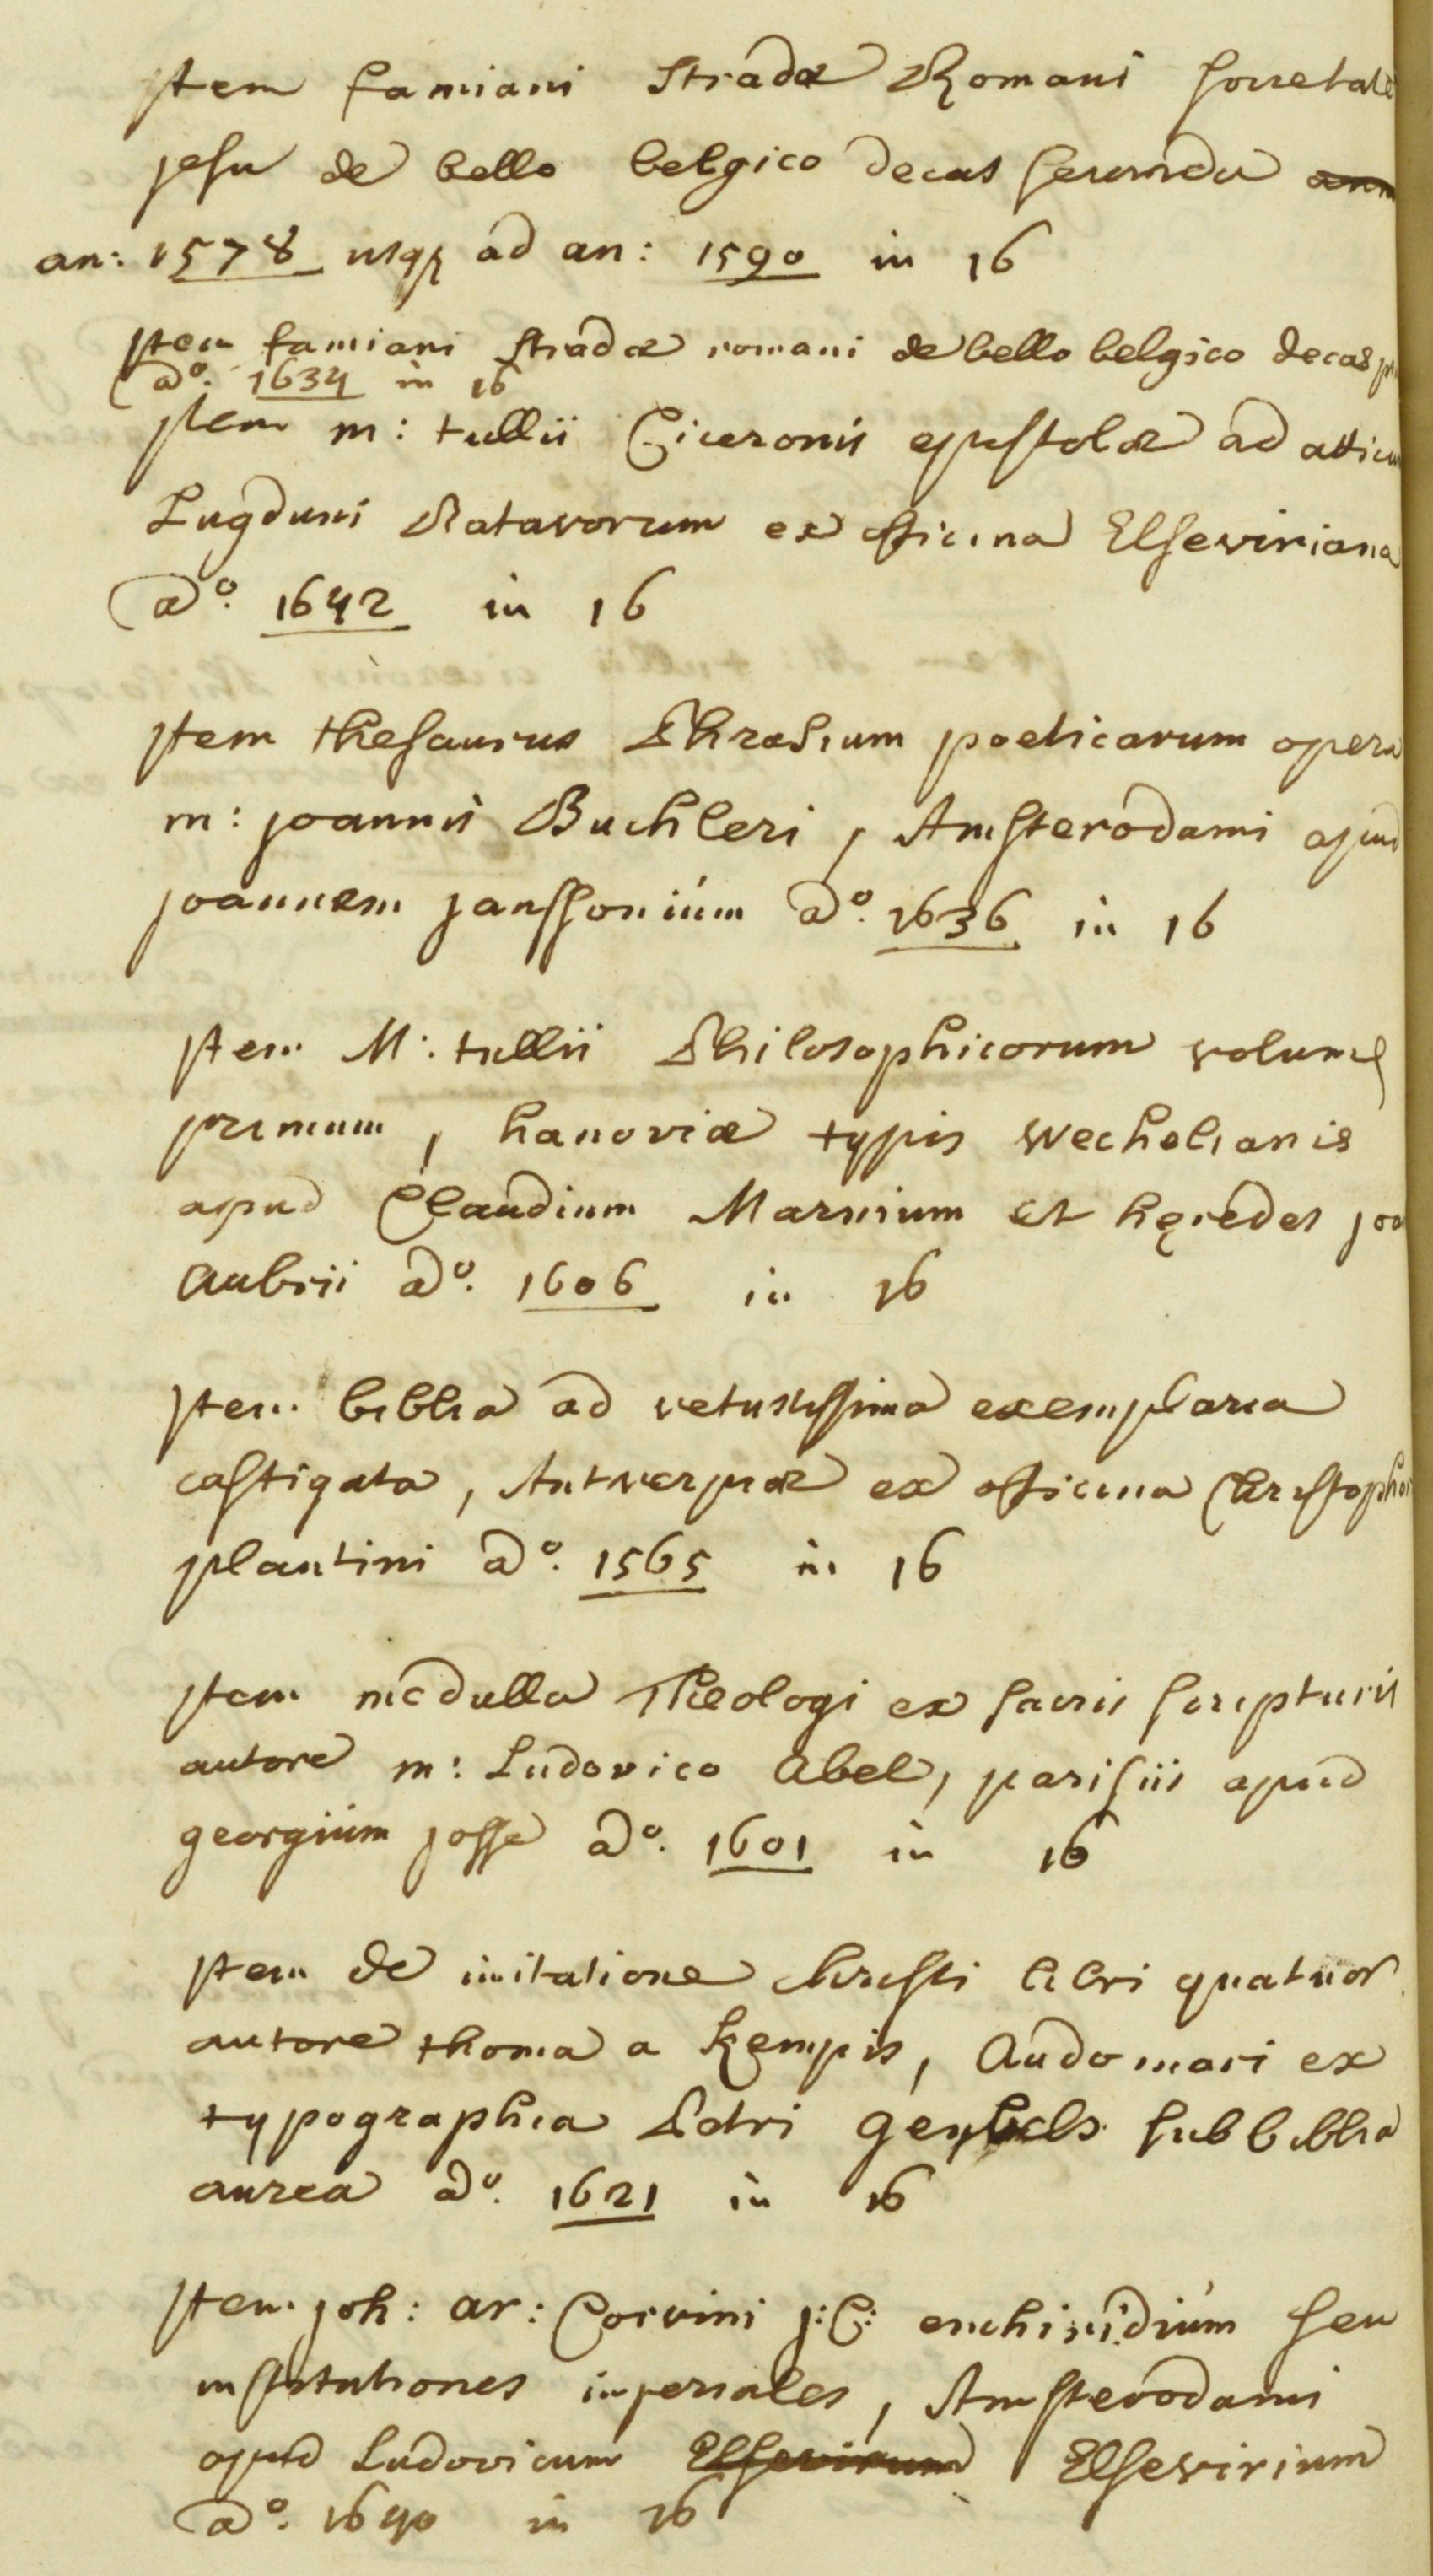 Item famiani Stradæ Romani Societatis
jesu de bello belgico decas secunda
an: 1578 usq; ad an: 1590 in 16
Item famiani Stradæ romani de bello belgico decas
aº. 1634 in 16
Item m: tullii Ciceronis epistolæ ad atticum
Lugduni Batavorum ex officina Elseviriana
aº. 1642 in 16
Item thesaurus Phrasium poeticarum opera
m: joannis Buchleri, Amsterodami apud
joannem janssonium aº. 1636 in 16
Item M: tullii Philosophicorum volumē
primum, hanoviæ typis wechelianis
apud Claudium Marnium et hęredes joa
Aubrii aº. 1606 in 16
Item biblia ad vetustissima exemplaria
castigata, Antverpiæ ex officina Christophori
plantini aº. 1565 in 16
Item medulla Theologi ex sacris scripturis
autore m: Ludovico Abel, parisiis apud
georgium josse aº. 1601 in 16
Item de imitatione christi libri quatuor
autore thoma a kempis, Audomari ex
typographia Petri sub biblia
aurea aº. 1621 in 16
Item joh: ar: Corvini j:C: enchiridium seu
institutiones imperiales, Amsterodami
apud Ludovicum Elsevirum Elsevirium
aº. 1640 in 16